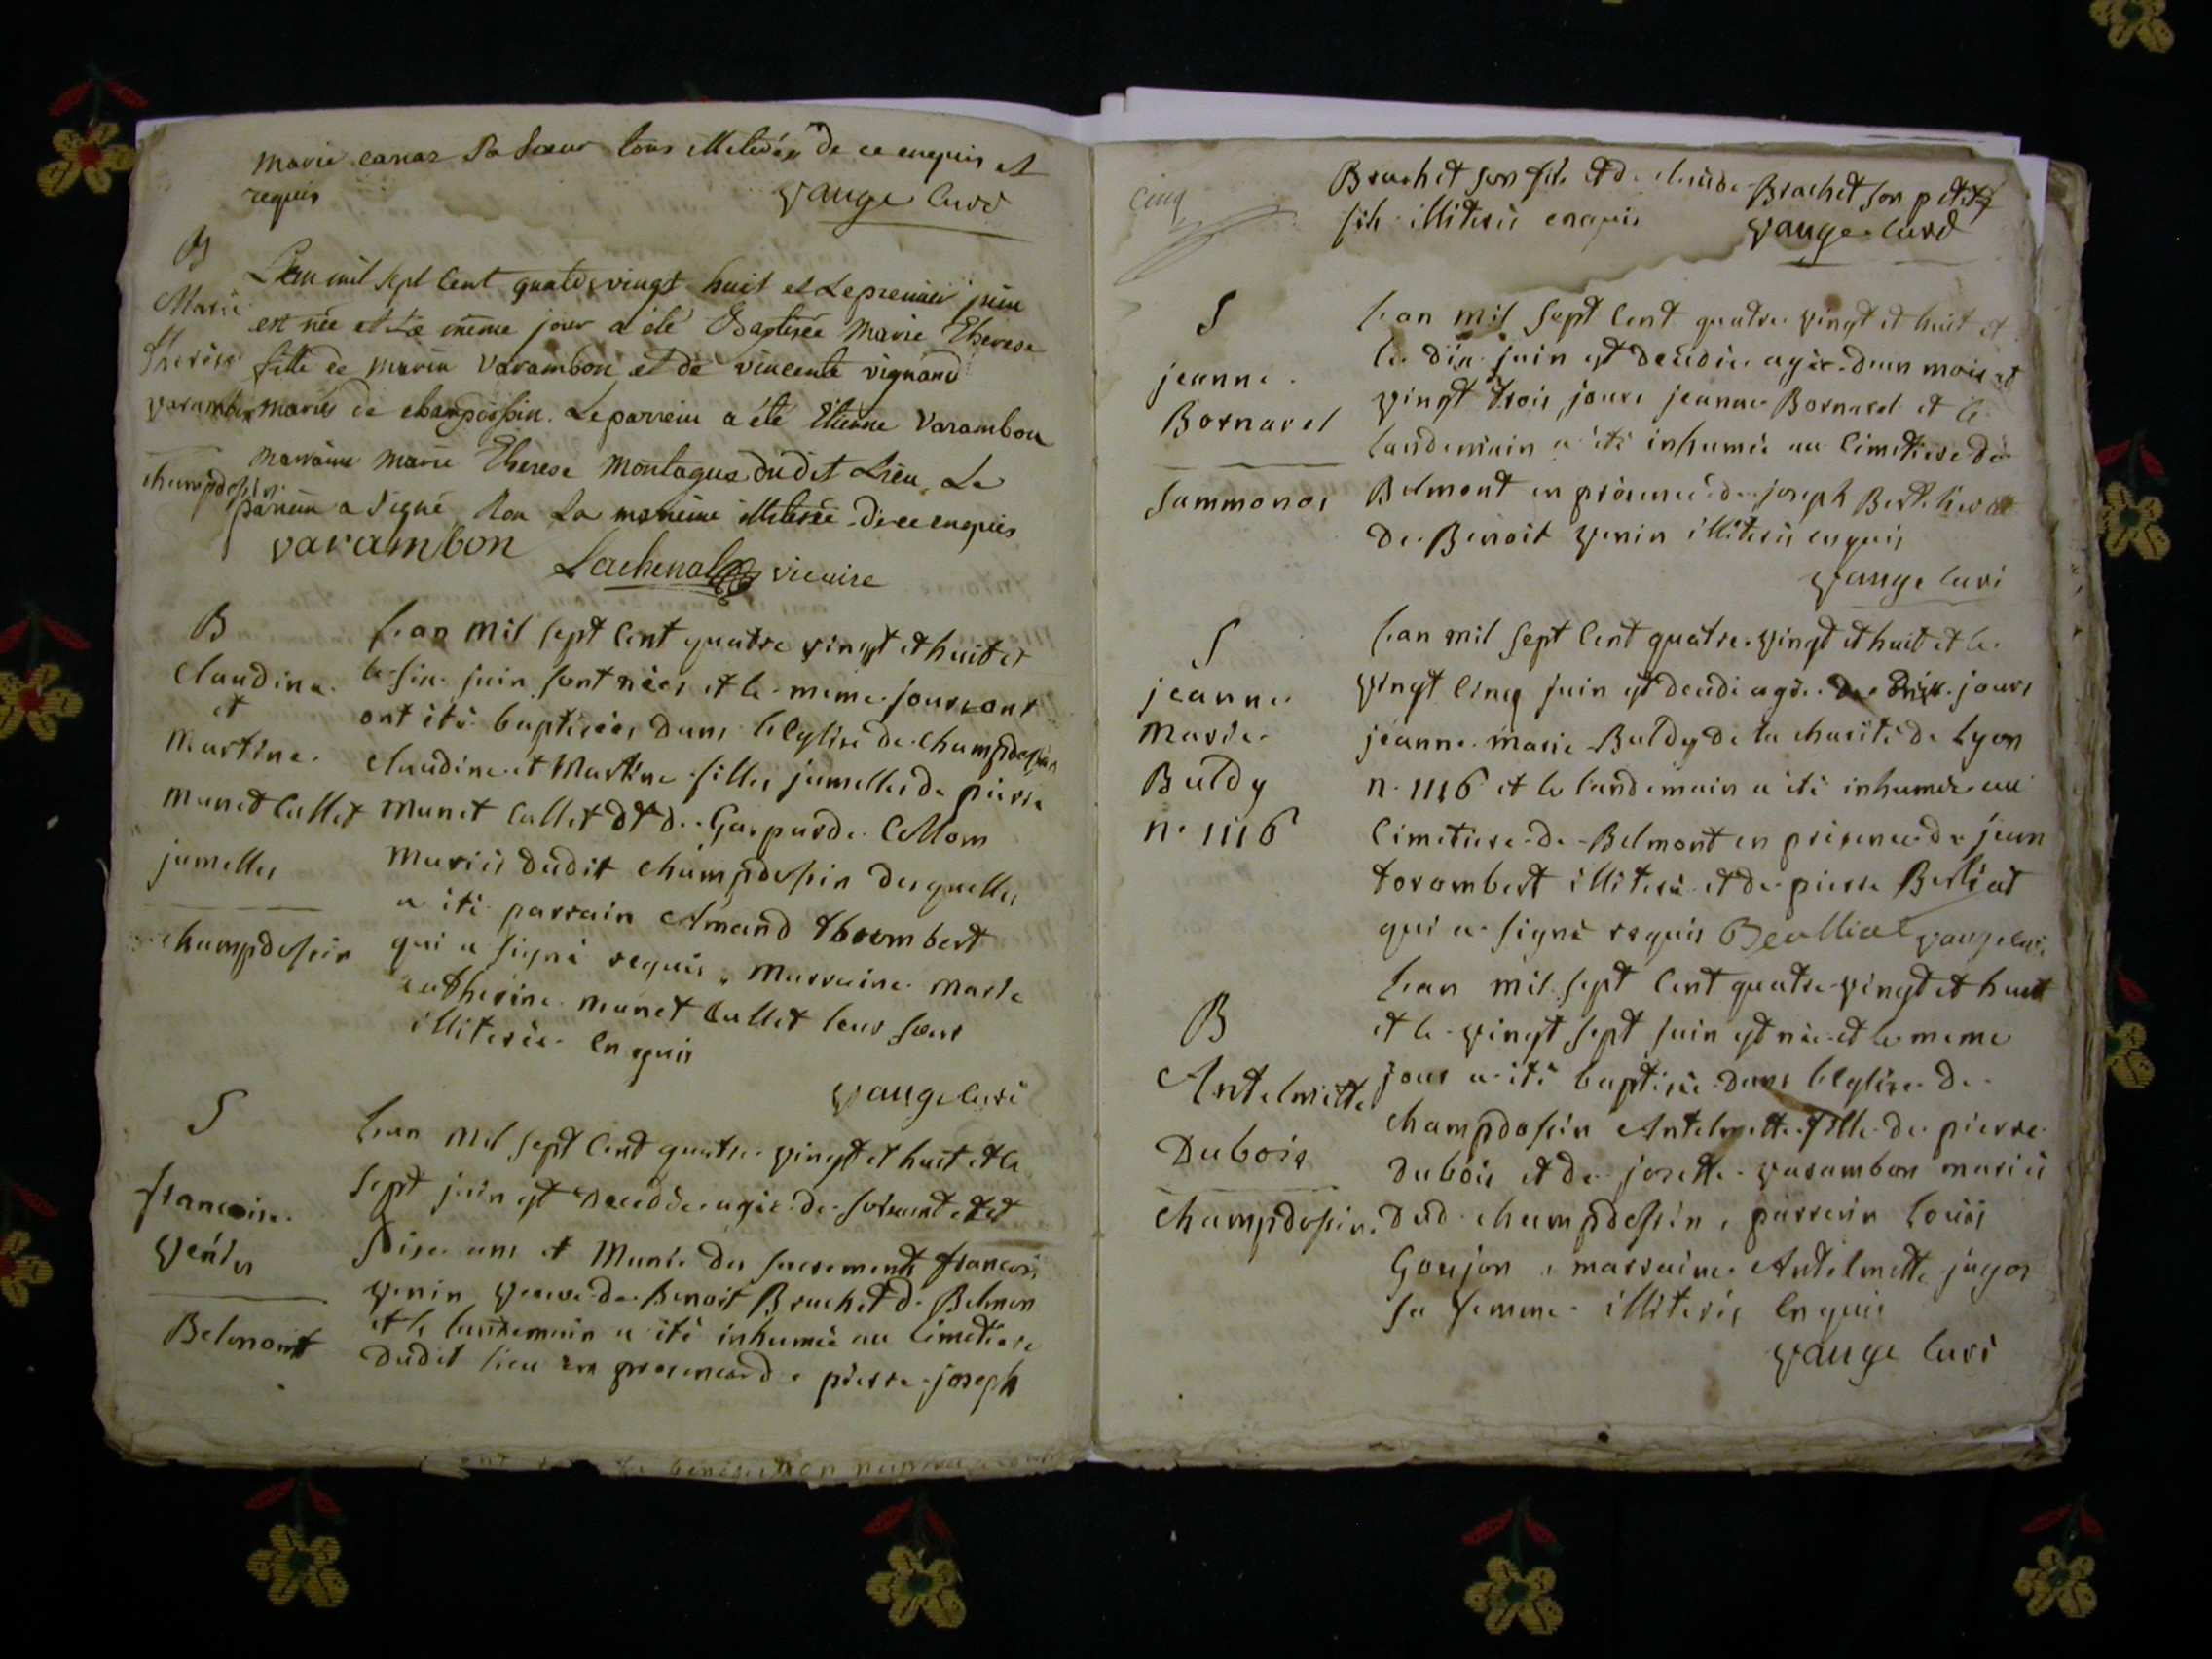 Marie canar Sa Sœur tous illiterés de ce enquis et
requis
vauge curé
B
Marie
Therese
varambon
champdossin
L'an mil sept cent quatrevingt huit et le premier juin
est née et le même jour a été Baptisée Marie Therese
fille de marin Varambon et de vincente vignand
mariés de champdossin. Le parrein a été Etienne Varambon
marraine Marie Therese Montagus dudit Lieu, Le
parrein a signé non la marreine illiterée de ce enquis
varambon
Lachenal vicaire
B
claudine
et
martine
munet Callet
jumelles
champdossin
L'an mil sept cent quatre vingt et huit et
le six juin sont nées et le meme jour ont
ont été baptisées dans l'eglise de champdossin
claudine et Martine filles jumelles de pierre
munet Callet et de Gaspar de Collom
mariés dudit champdossin desquelles
a été parrain Amand thorombert
qui a signé requis, marraine marie
catherine munet Callet leur sœur
illiterée enquis
vauge curé
S
francoise
venin
Belmont
L'an mil sept cent quatre vingt et huit et le
sept juin est decedée agée de soixante et
seize ans et munie des sacrements francoise
venin veuve de Benoit Brachet de Belmon
et le landemain a été inhumée au cimetiere
dudit lieu en presence de pierre joseph
cinq
Brachet son fils et de claude Brachet son petit
fils illiterés enquis
vauge curé
S
jeanne
Bornarel
Sammonos
L'an mil sept cent quatre vingt et huit et
le dix juin est decedée agée d'un mois et
vingt trois jours jeanne Bornarel et le
landemain a été inhumée au cimetiere de
Belmont en presence de joseph Berthier et
de Benoit venin illiterés enquis
vauge curé
S
jeanne
Marie
Buldy
n. 1116
L'an mil sept cent quatre vingt et huit et le
vingt cinq juin est decedé agée de dix jours
jeanne marie Buldy de la charité de Lyon
n. 1116 et le landemain a été inhumée au
cimetiere de Belmont en presence de jean
torombert illiteré et de pierre Berliat
qui a signé requis Bealliat vauge curé
B
Antelmette
Dubois
champdossin
L'an mil sept cent quatre vingt et huit
et le vingt sept juin est née et le meme
jour a été baptisée dans l'eglise de
champdossin Antelmette fille de pierre
dubois et de josette varambon mariés
dud. champdossin, parrain Louis
Goujon, marraine Antelmette jugos
sa femme illiterés enquis
vauge curé